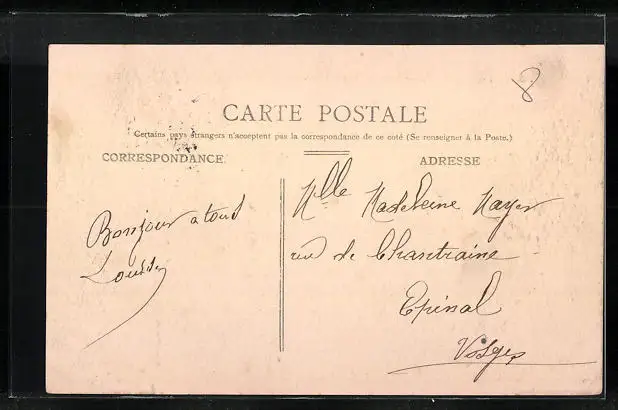 8
CARTE POSTALE
Certains pays étrangers n'acceptent pas la correspondance de ce coté (Se renseigner à la Poste.)
CORRESPONDANCE
ADRESSE
Bonjour a tous
Mlle Madeleine Mayer
rue de Chantraine
Epinal
Vosges